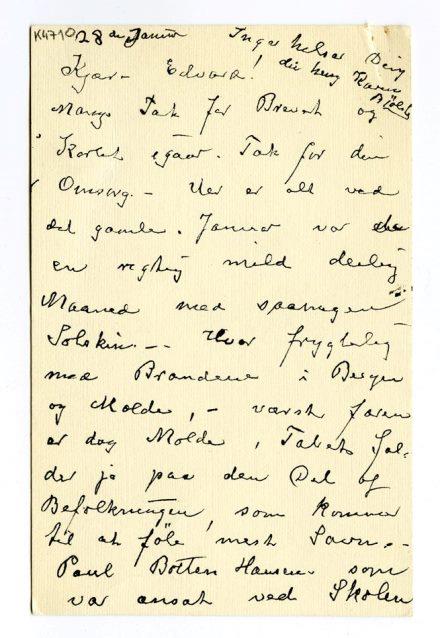 K4710
28de Januar
Inger hilser Dig
Kjær Edvard!
Mange Tak for Brevet og
Kortet igaar. Tak for din
Omsorg. – Her er alt ved
det gamle. Januar var
en rigtig mild deilig
Maaned med saamegen
Solskin. – – Hvor frygtelig
med Brandene i Bergen
og Molde, – værst faren
er dog Molde, Tabets
der jo paa den Del af
Befolkningen, som kommer
til at føle mest Savn. –
Paul Botten Hansen som
var ansat ved Skolen